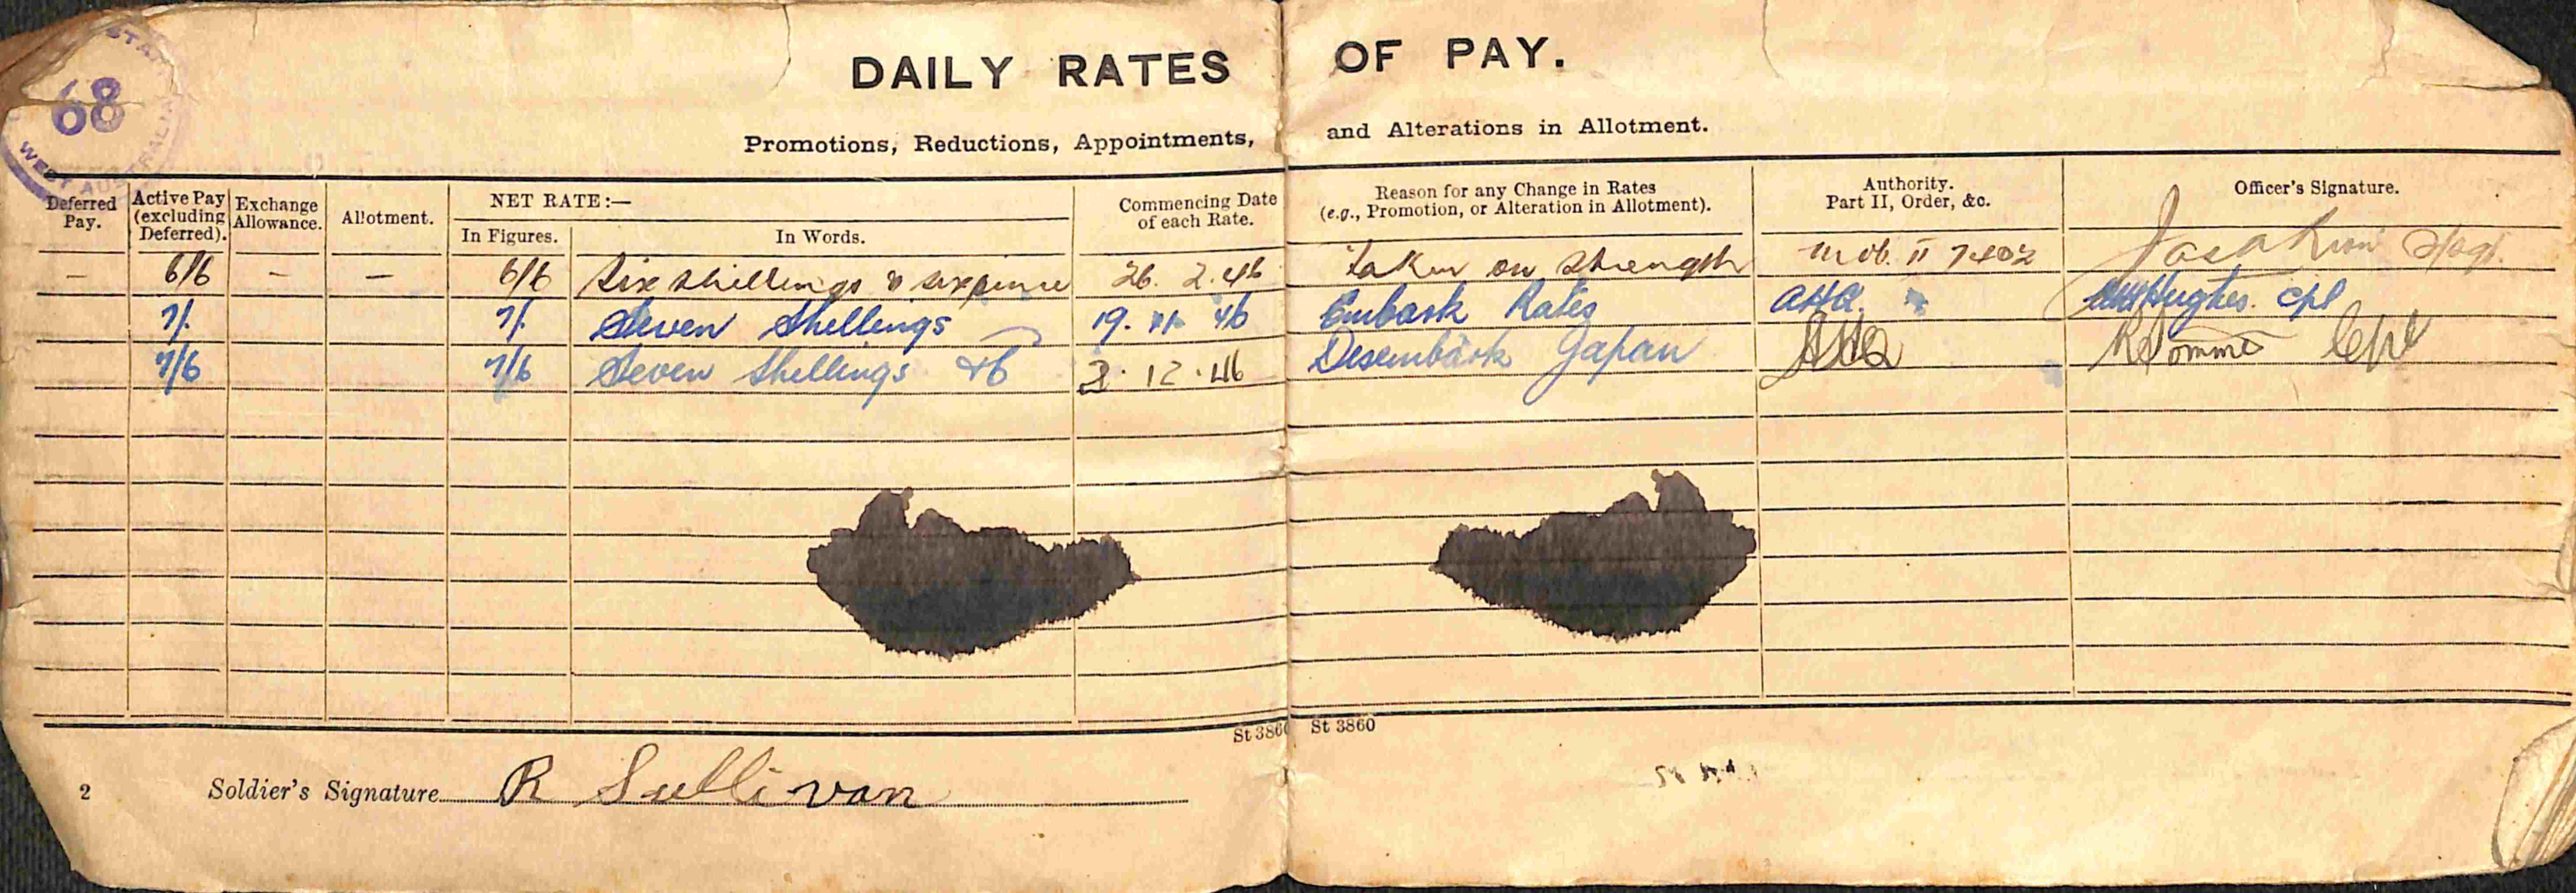 DAILY RATES OF PAY.
Promotions, Reductions, Appointments, and Alterations in Allotment.
68
WEST AUSTRALIA
Deferred Pay. Active Pay (excluding Deferred). Exchange Allowance. Allotment. NET RATE:— In Figures. In Words. Commencing Date of each Rate. Reason for any Change in Rates (e.g., Promotion, or Alteration in Allotment). Authority. Part II, Order, &c. Officer's Signature.
— 6/6 — — 6/6 Six shillings & sixpence 26. 2.46 Taken on Strength
7/. 7/. Seven Shellings 19. 11 46 Embark Rates AHQ. Hughes. Cpl
7/6 7/6 Seven Shellings &6 3. 12. 46 Desembark Japan AHQ Cpl
St 3860 St 3860
2 Soldier's Signature R Sullivan